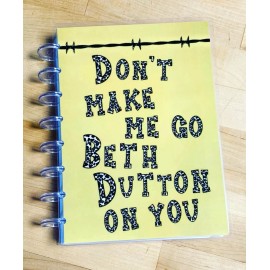 DON'T
MAKE
ME GO
BETH
DUTTON
ON YOU